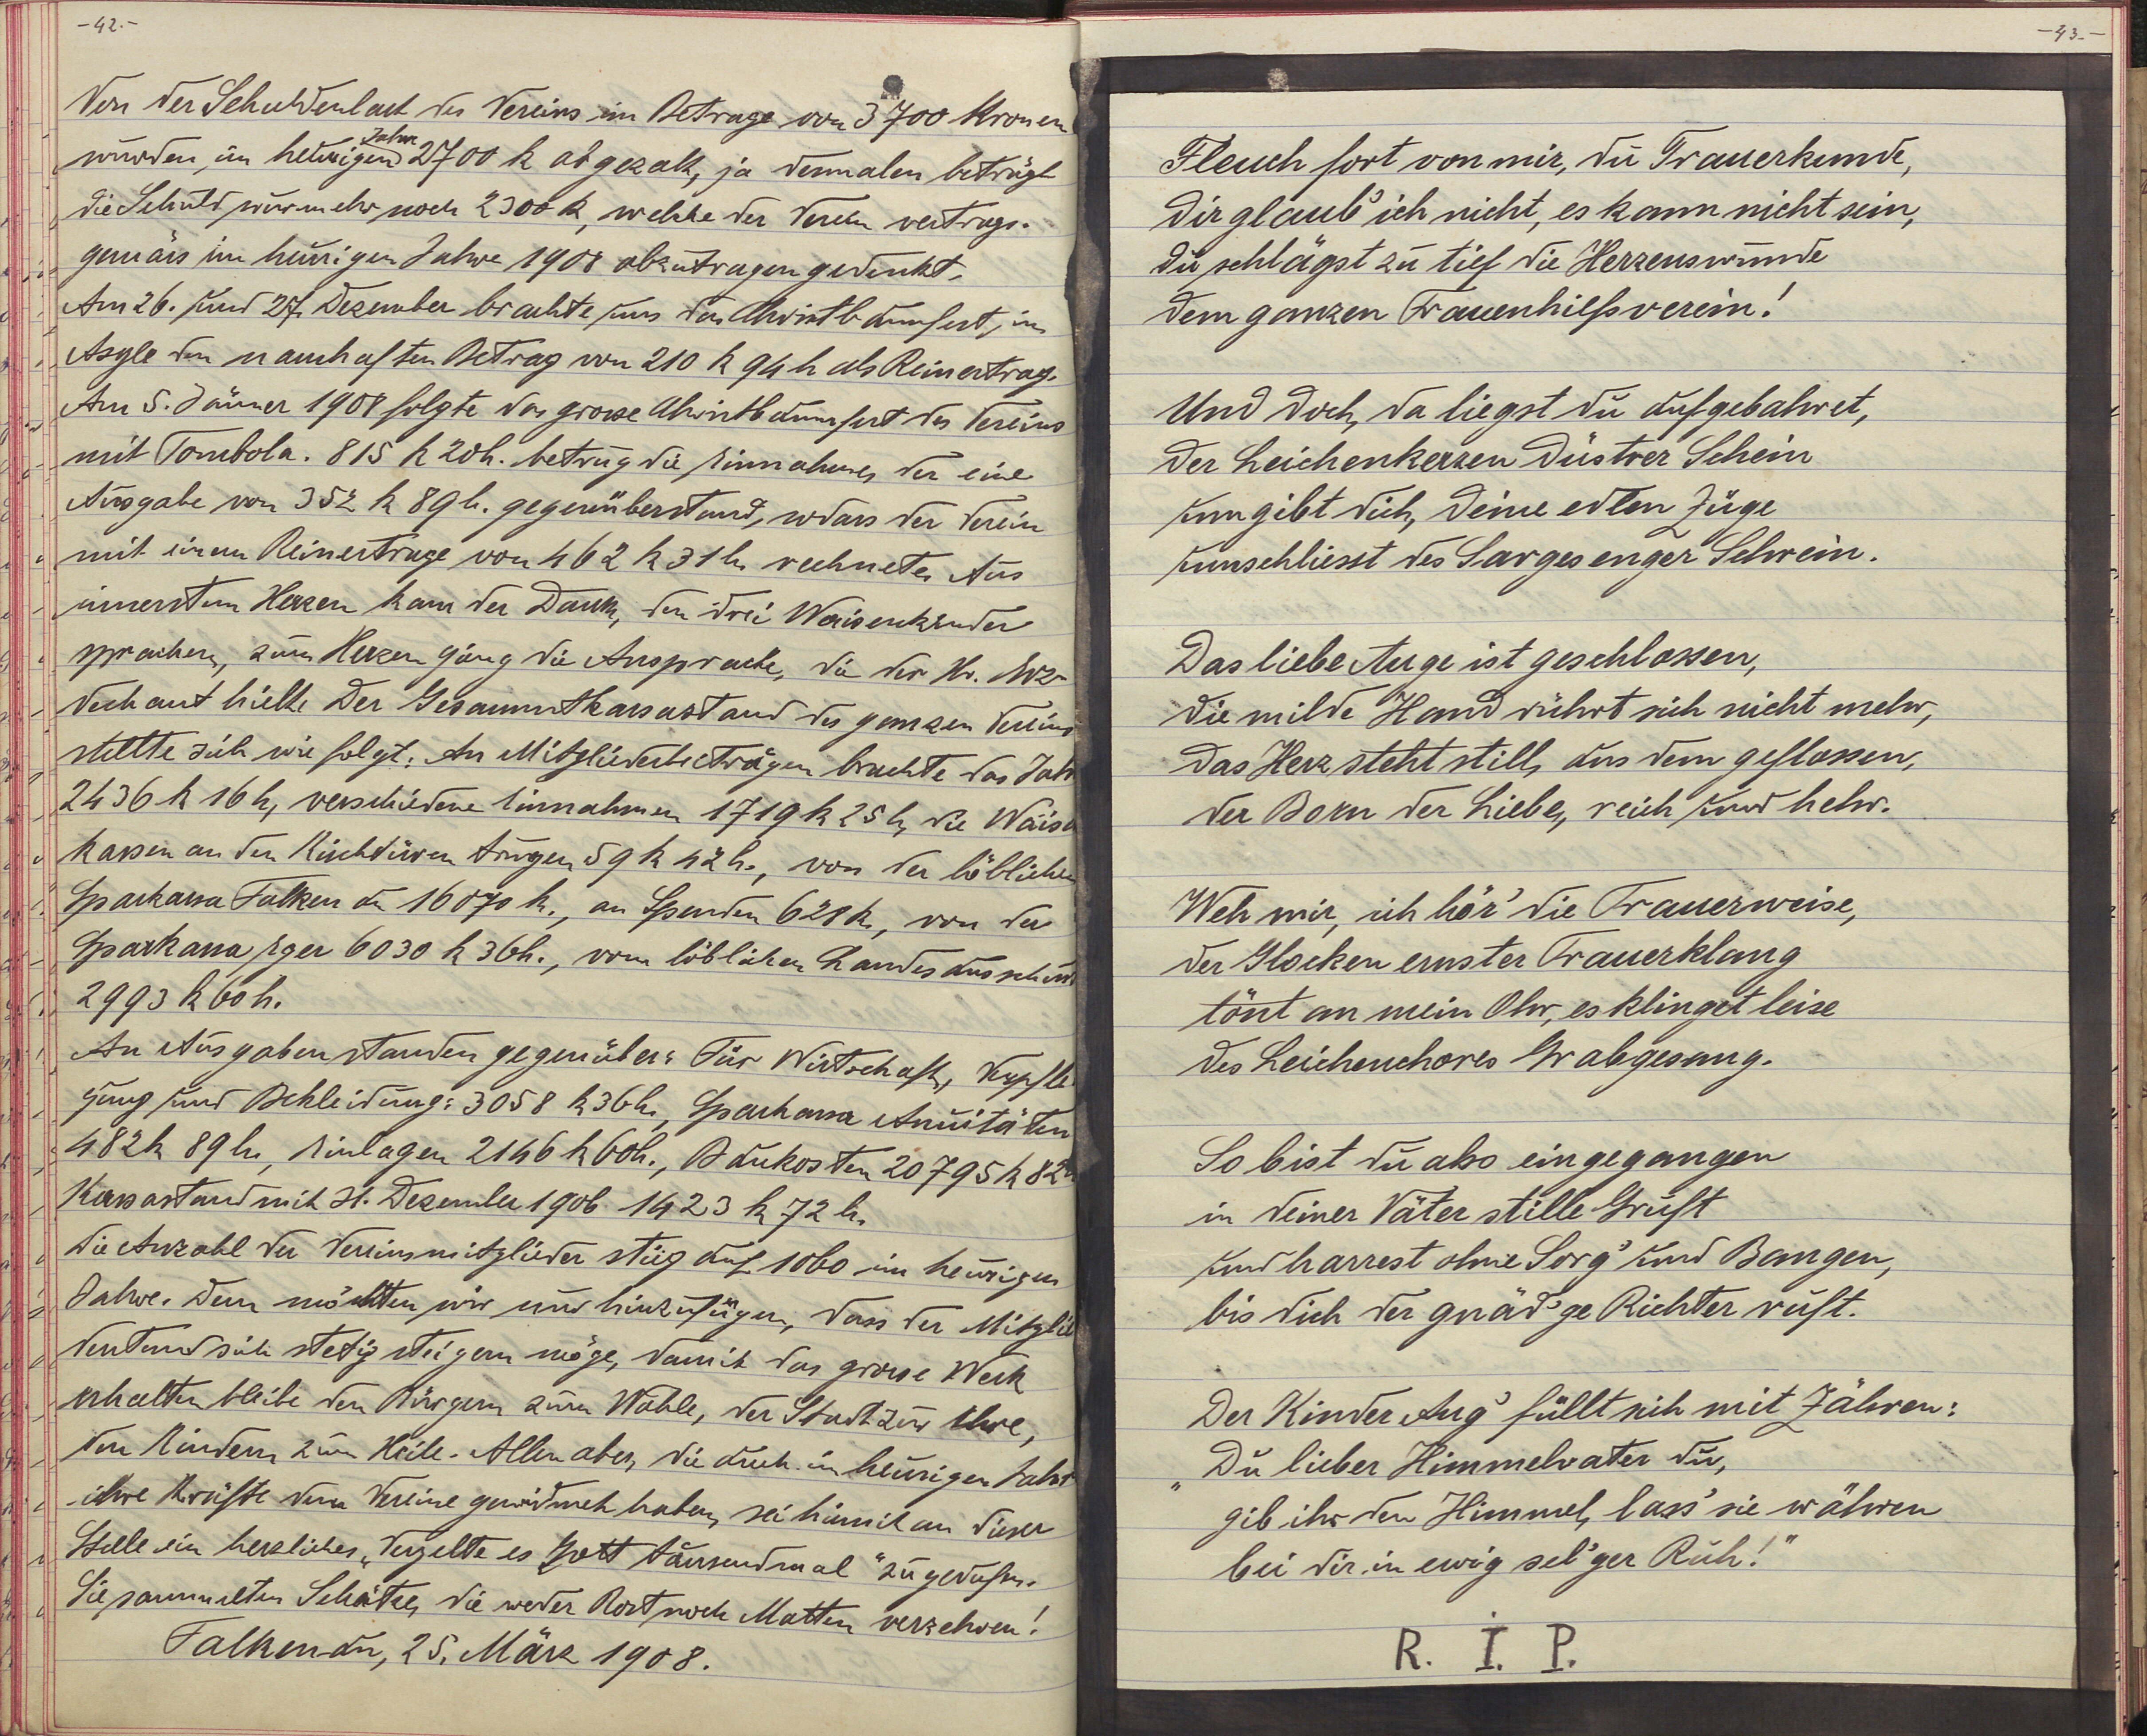 -42.-
Von der Schuldenlast des Vereins im Betrage von 3700 Kronen
wurden im heurigen Jahre 2700 K abgezalt, ja dermalen beträgt
die Schuld nurmehr noch 2300 K, welche der Verein vertrags-
gemäss im heurigen Jahre 1908 abzutragen gedenkt.
Am 26. und 27. Dezember brachte uns das Christbaumfest im
Asyle den namhaften Betrag von 210 K 94 h als Reinertrag.
Am 5. Jänner 1908 folgte das grosse Christbaumfest des Vereins
mit Tombola. 815 K 20 h. betrug die Einnahme, der eine
Ausgabe von 352 K 89 h. gegenüberstand, sodass der Verein
mit einem Reinertrage von 462 K 31 h rechnete. Aus
innerstem Herzen kam der Dank, den drei Waisenkinder
sprachen, zum Herzen ging die Ansprache, die der Hr. Erz-
dechant hielt. Der Gesammtkassastand des ganzen Vereins
stellte sich wie folgt: An Mitgliederbeiträgen brachte das Jahr
2436 K 16 h, verschiedene Einnahmen 1719 K 25 h, die Waisen
kassen an den Kirchtüren trugen 59 K 42 h., von der löblichen
Sparkassa Falkenau 16070 K., an Spenden 628 K, von der
Sparkassa Eger 6030 K 36 h., vom löblichen Landesausschuss
2993 K 60 h.
An Ausgaben standen gegenüber: Für Wirtschaft, Verpfle
gung und Bekleidung: 3058 K 36 h, Sparkassa Anuitäten
482 K 89 h, Einlagen 2146 K 60 h., Baukosten 20795 K 82 h
Kassastand mit 31. Dezember 1906 1423 K 72 h.
Die Anzahl der Vereinsmitglieder stieg auf 1060 im heurigen
Jahre. Dem möchten wir nur hinzufügen, dass der Mitglie
derstand sich stetig steigern möge, damit das grosse Werk
erhalten bleibe den Bürgern zum Wohle, der Stadt zur Ehre,
den Kindern zum Heile. Allen aber, die auch im heurigen Jahre
ihre Kräfte dem Vereine gewidmet haben, sei hiemit an dieser
Stelle ein herzliches „Vergelte es Gott tausendmal" zugerufen.
Sie sammelten Schätze, die weder Rost noch Motten verzehren!
Falkenau, 25. März 1908.
-43.-
Fleuch fort von mir, du Trauerkunde,
Dir glaub' ich nicht, es kann nicht sein,
du schlägst zu tief die Herzenswunde
dem ganzen Frauenhilfsverein!
Und doch, da liegst du aufgebahret,
der Leichenkerzen düstrer Schein
umgibt dich, deine edlen Züge
umschliesst des Sarges enger Schrein.
Das liebe Auge ist geschlossen,
die milde Hand rührt sich nicht mehr,
das Herz steht still, aus dem geflossen,
der Born der Liebe, reich und hehr.
Weh mir, ich hör' die Trauerweise,
der Glocken ernster Trauerklang
tönt an mein Ohr, es klinget leise
des Leichenchores Grabgesang.
So bist du also eingegangen
in deiner Väter stille Gruft
und harrest ohne Sorg' und Bangen,
bis dich der gnäd'ge Richter ruft.
Der Kinder Aug' füllt sich mit Zähren:
„Du lieber Himmelvater du,
gib ihr den Himmel, lass' sie währen
bei dir in ewig sel'ger Ruh!"
R. I. P.